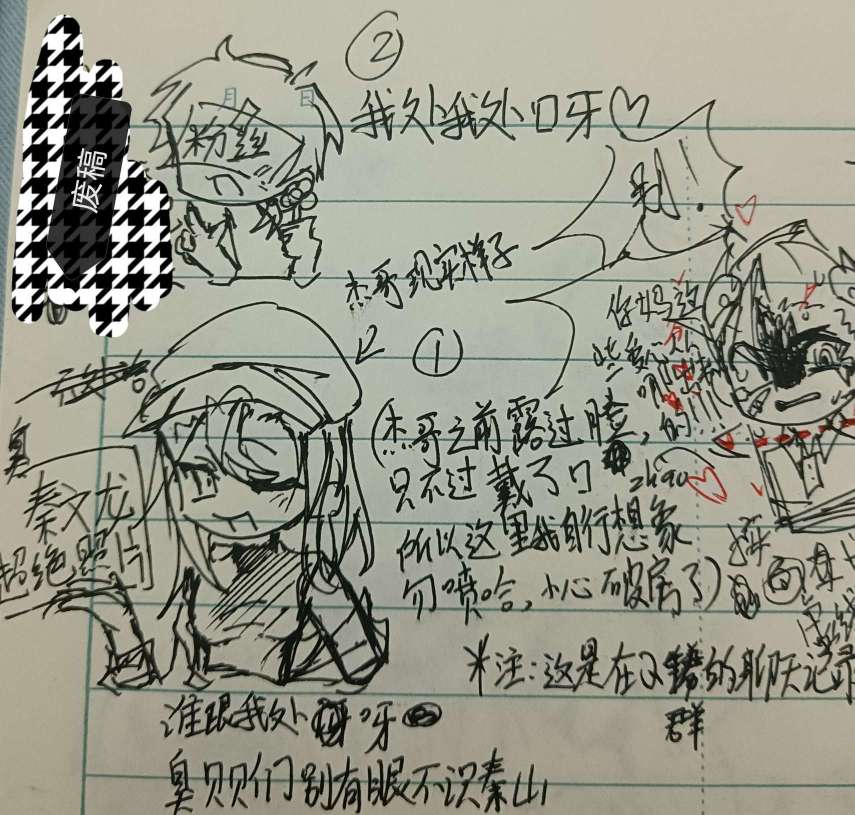 ②
月 日
粉丝
我处我处口牙♡
废稿
杰哥现实样子
①
你妈这
(杰哥之前露过脸,
只不过戴了口zhao
所以这里我自行想象
勿喷哈,小心破房了)
臭
秦文龙
超绝照片
*注:这是在QQ的聊天记录
群
谁跟我处呀
臭贝贝们别有眼不识秦山